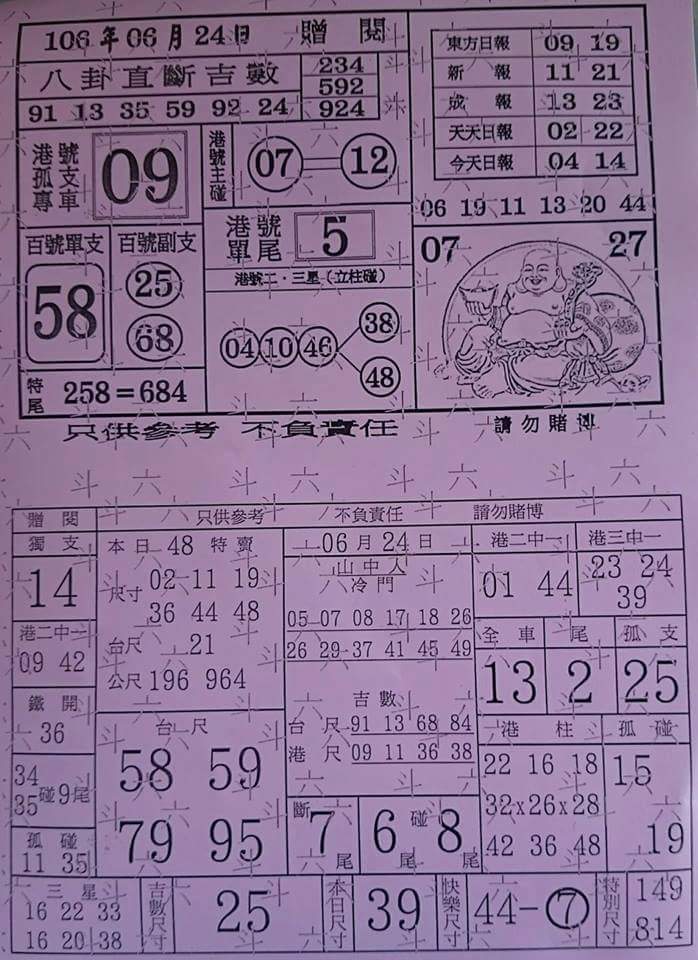 106年06月24日 贈閱
八卦直斷吉數
234
592
924
91 13 35 59 92 24
東方日報 09 19
新報 11 21
成報 13 23
天天日報 02 22
今天日報 04 14
06 19 11 13 20 44
港號孤支專車 09
港號主碰 07 12
港號單尾 5
百號單支 58
百號副支 25 68
港號二·三星(立柱碰)
04 10 46 38 48
07 27
特尾 258=684
只供參考 不負責任 請勿賭博
贈閱 只供參考 不負責任 請勿賭博
獨支 14
港二中一 09 42
鐵開 36
34 35 碰9尾
孤碰 11 35
本日48特賣
尺寸 02 11 19
36 44 48
台尺 21
公尺 196 964
台尺
58 59
79 95
06月24日
山中人
冷門
05 07 08 17 18 26
26 29 37 41 45 49
吉數
台尺 91 13 68 84
港尺 09 11 36 38
斷 7尾
6尾 碰 8尾
港二中一 01 44
港三中一 23 24 39
全車 13
尾 2
孤支 25
港柱
22 16 18
32x26x28
42 36 48
孤碰
15
19
三星
16 22 33
16 20 38
吉數尺寸 25
本日尺寸 39
快樂尺寸 44-7
特別尺寸 149 814
斗六